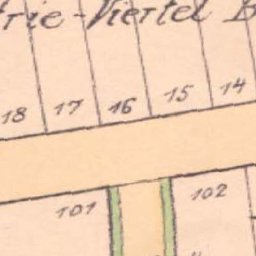 trie-Viertel B
18 17 16 15 14
101 102